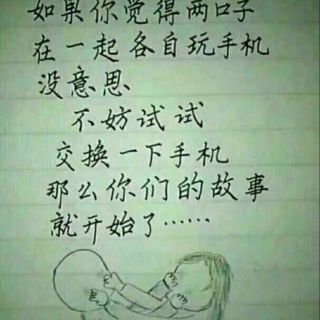 如果你觉得两口子
在一起各自玩手机
没意思
不妨试试
交换一下手机
那么你们的故事
就开始了……